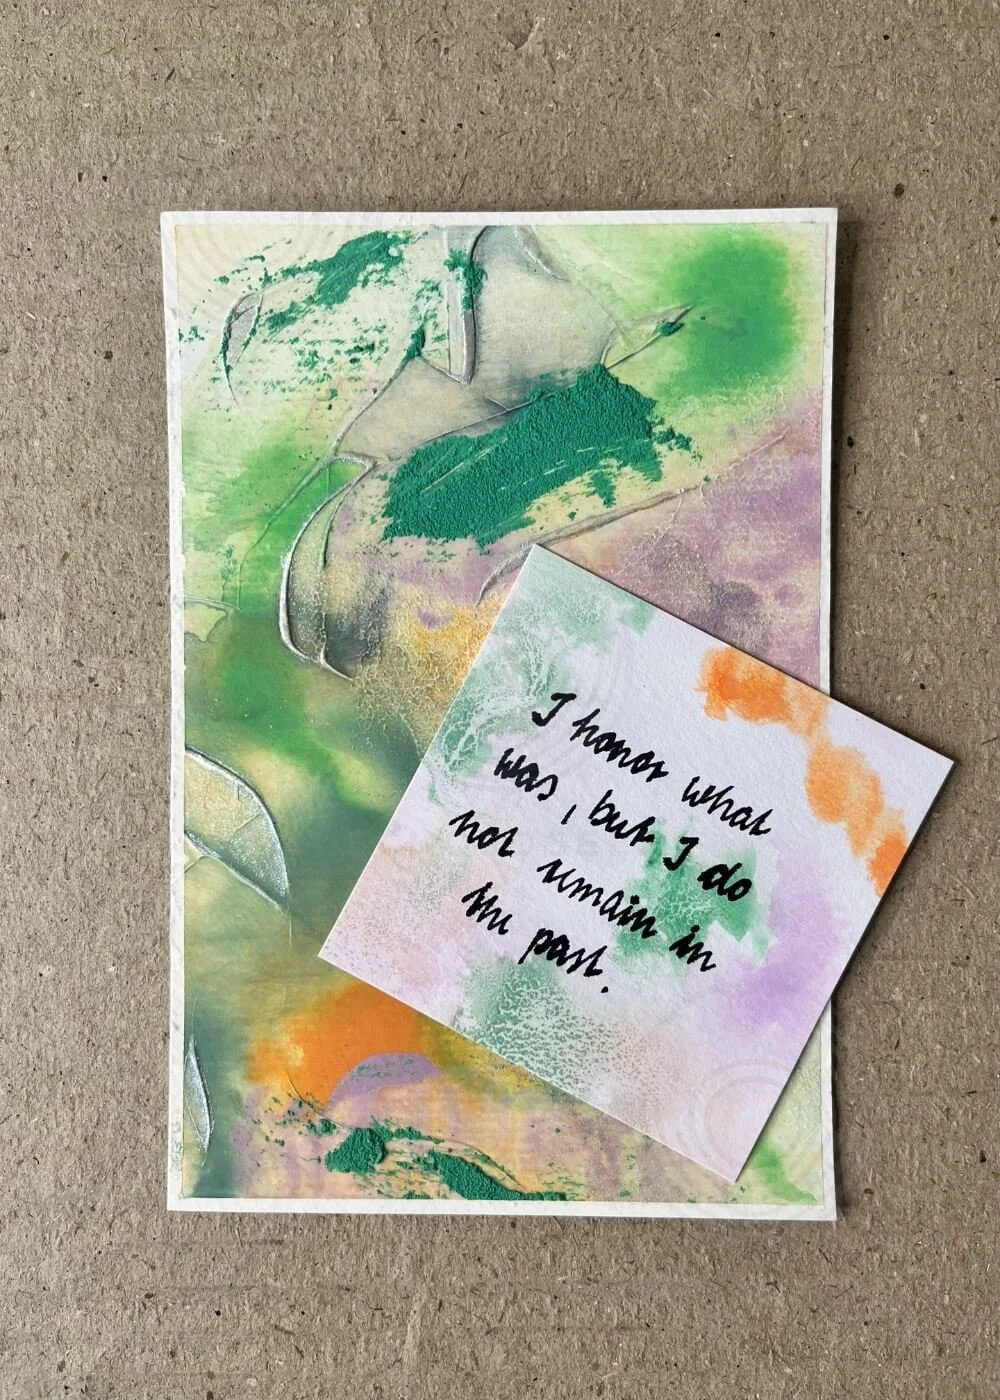 I honor what
was, but I do
not remain in
the past.